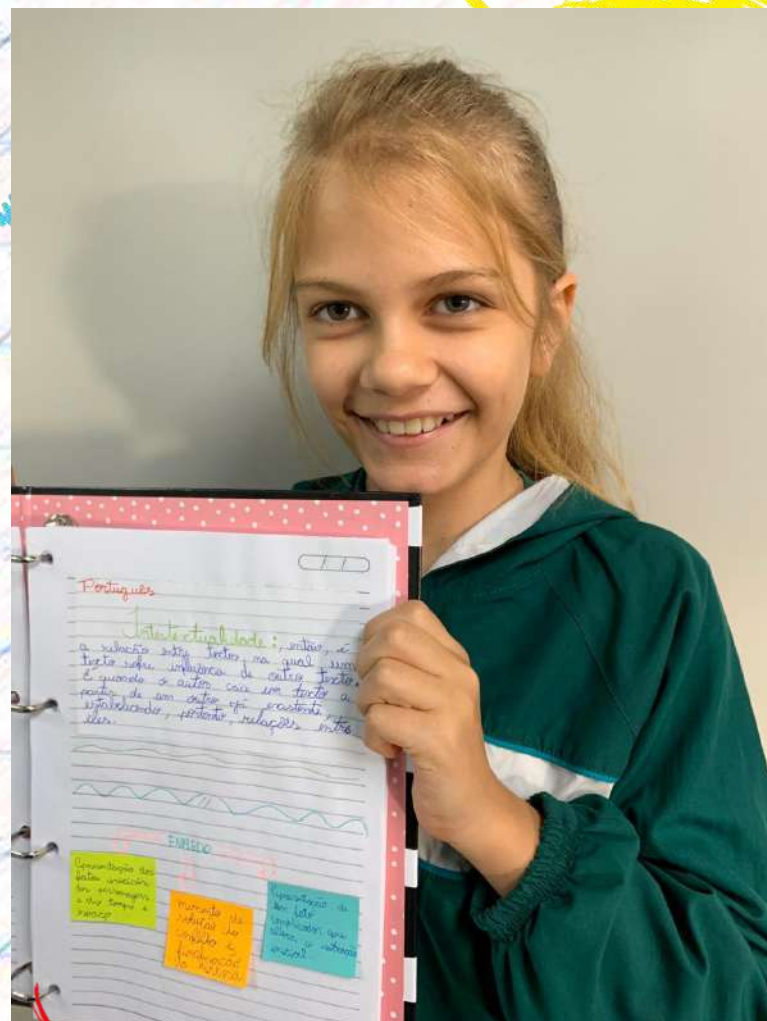 Português
Intertextualidade:, então, é
a relação entre textos, na qual um
texto sofre influência de outro texto.
É quando o autor cria um texto a
partir de um outro já existente,
estabelecendo, portanto, relações entre
eles.
ENREDO
Apresentação dos
fatos iniciais
dos personagens
e do tempo e
espaço
momento de
solução do
conflito e
finalização
Apresentação de
um fato
complicador que
altera a situação
inicial